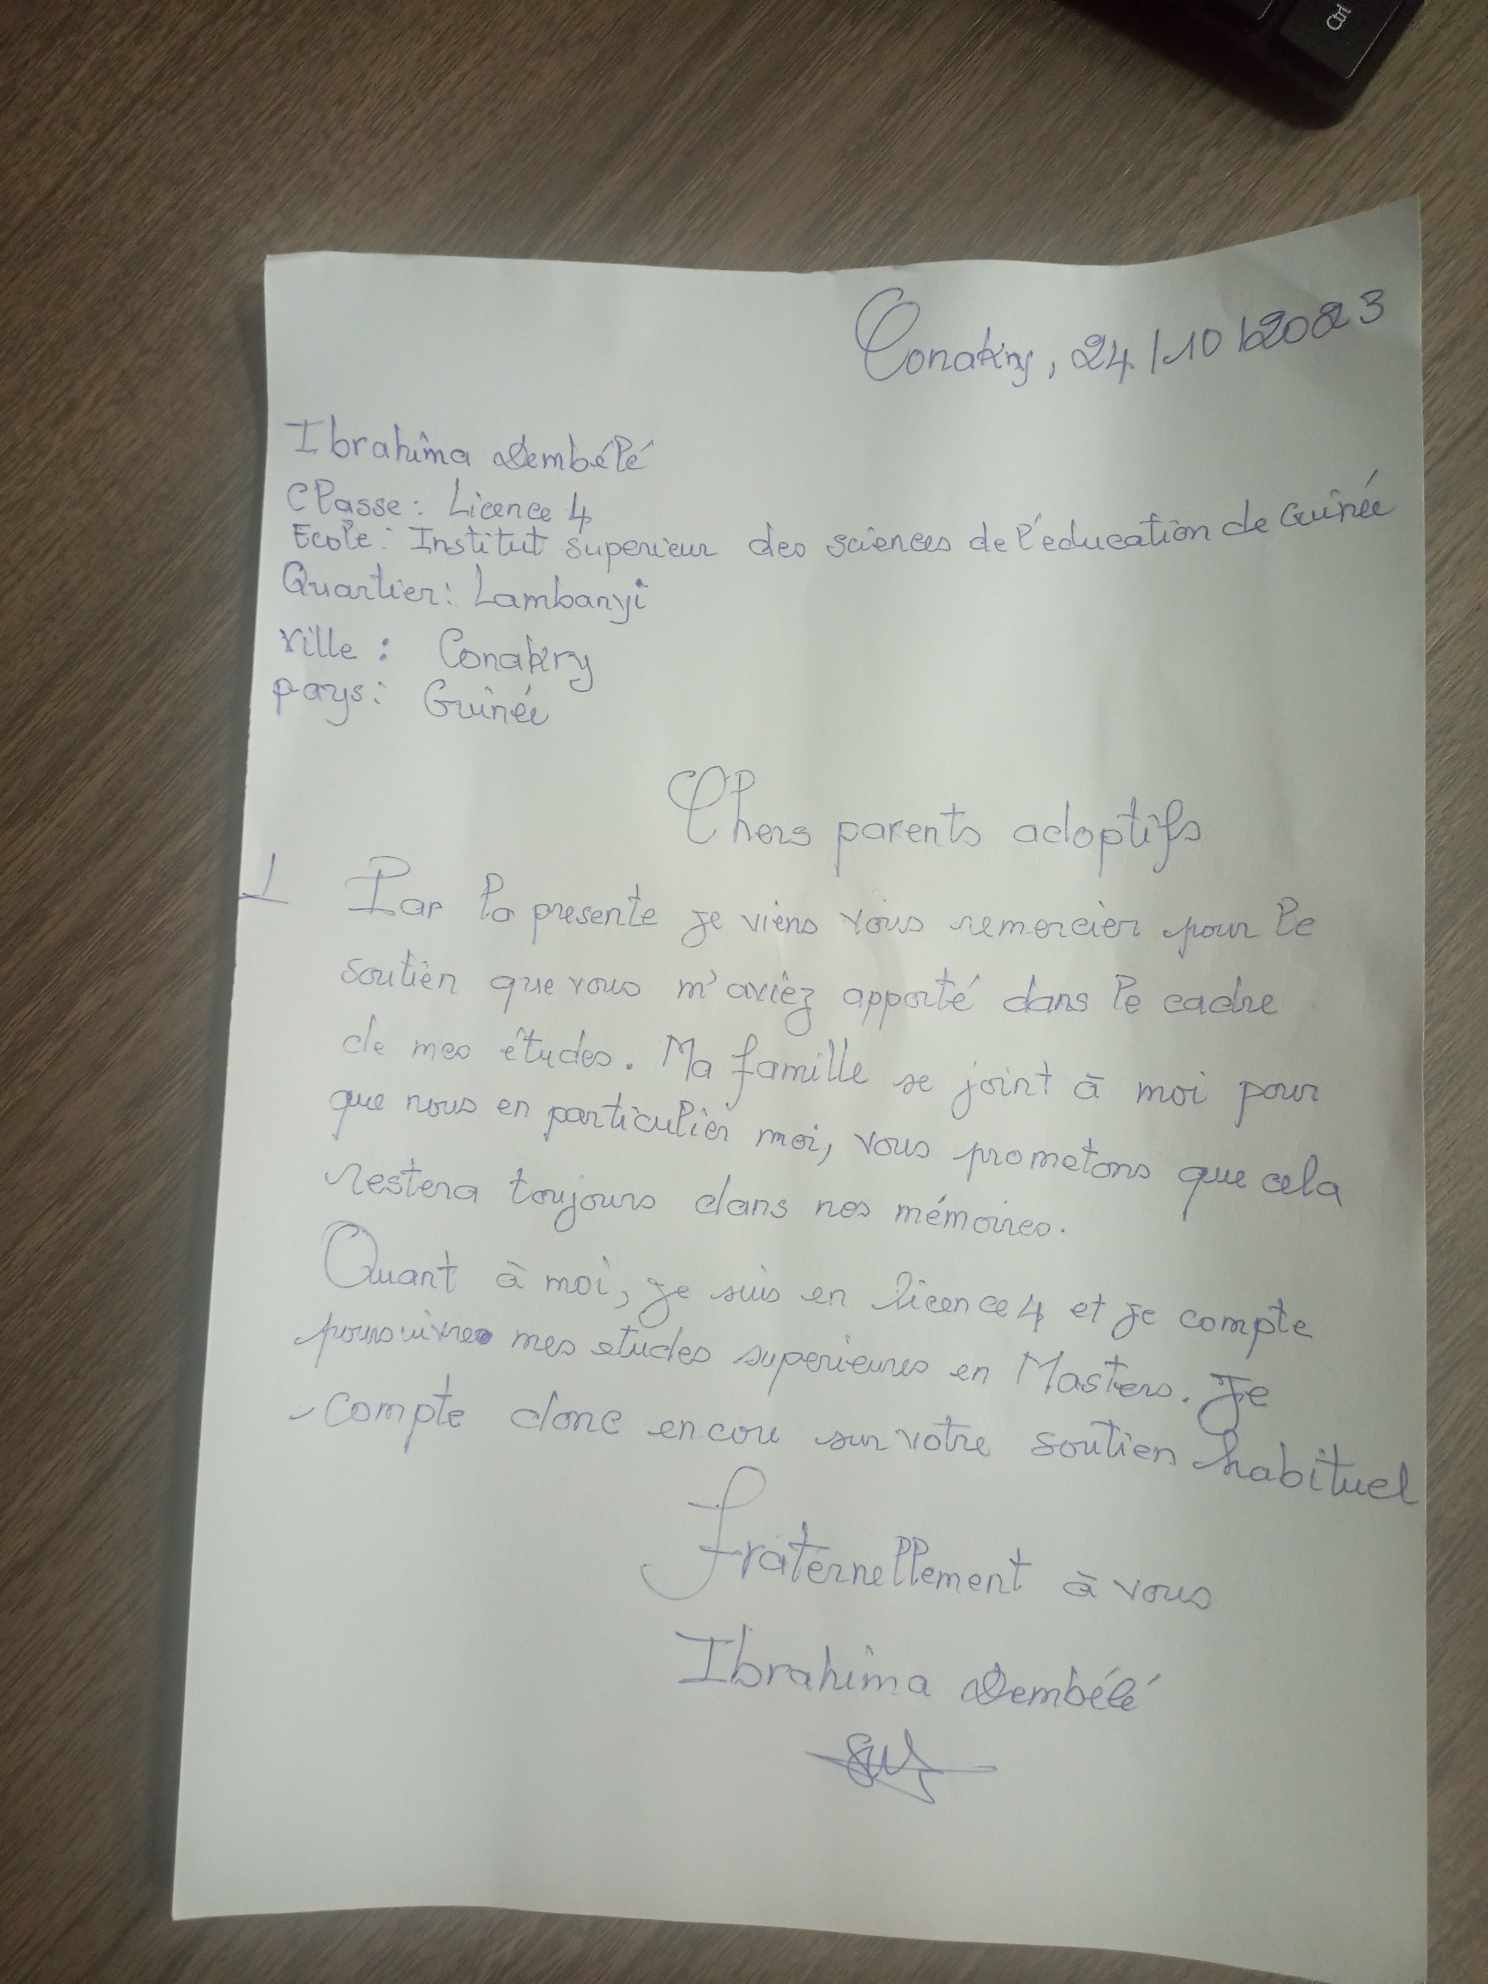 Ctrl
Conakry, 24/10/2023
Ibrahima Dembélé
Classe : Licence 4
Ecole : Institut superieur des sciences de l'éducation de Guinée
Quartier : Lambanyi
ville : Conakry
pays : Guinée
Chers parents adoptifs
Par la presente je viens vous remercier pour le
soutien que vous m'aviez apporté dans le cadre
de mes études. Ma famille se joint à moi pour
que nous en particulier moi, vous prometons que cela
restera toujours dans nos mémoires.
Quant à moi, je suis en licence 4 et je compte
poursuivre mes etudes superieures en Masters. Je
compte donc encore sur votre soutien habituel
fraternellement à vous
Ibrahima Dembélé